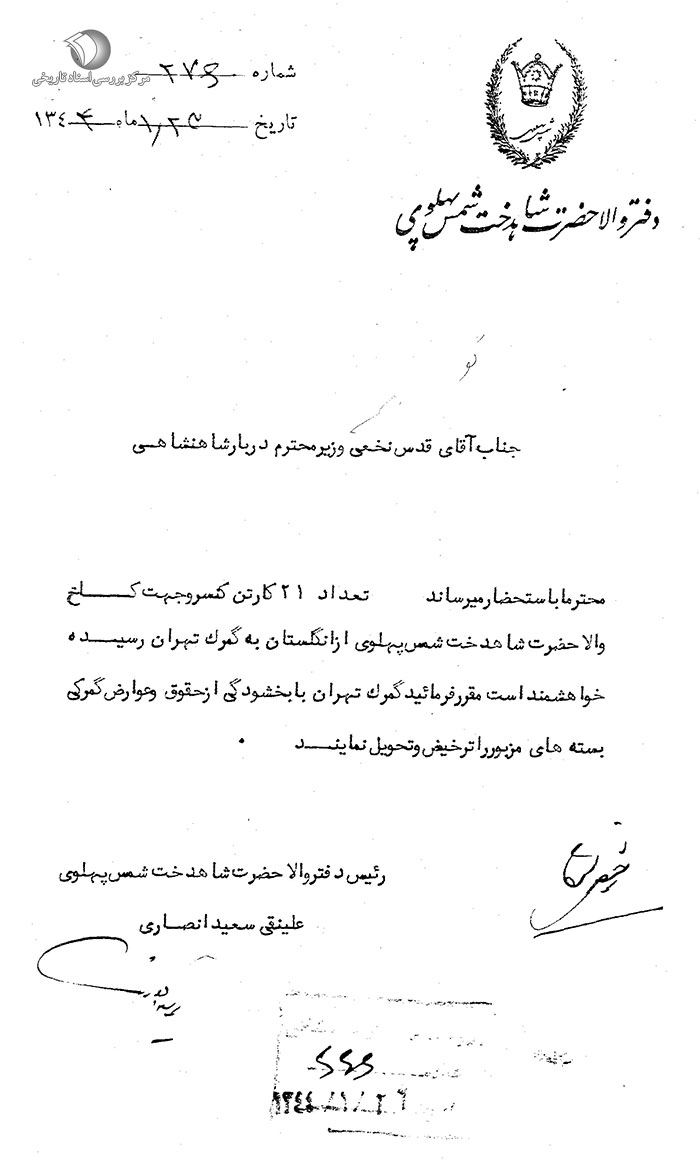 مرکز بررسی اسناد تاریخی
شماره ۲۷۶
تاریخ ماه ۱۳۴۴
شمس پهلوی
دفتر والاحضرت شاهدخت شمس پهلوی
جناب آقای قدس نخعی وزیر محترم دربار شاهنشاهی
محترما باستحضار میرساند تعداد ۲۱ کارتن کنسرو جهت کاخ
والاحضرت شاهدخت شمس پهلوی از انگلستان به گمرك تهران رسیده
خواهشمند است مقرر فرمائید گمرك تهران با بخشودگی از حقوق و عوارض گمرکی
بسته های مزبور را ترخیص و تحویل نمایند .
رئیس دفتر والاحضرت شاهدخت شمس پهلوی
علینقی سعید انصاری